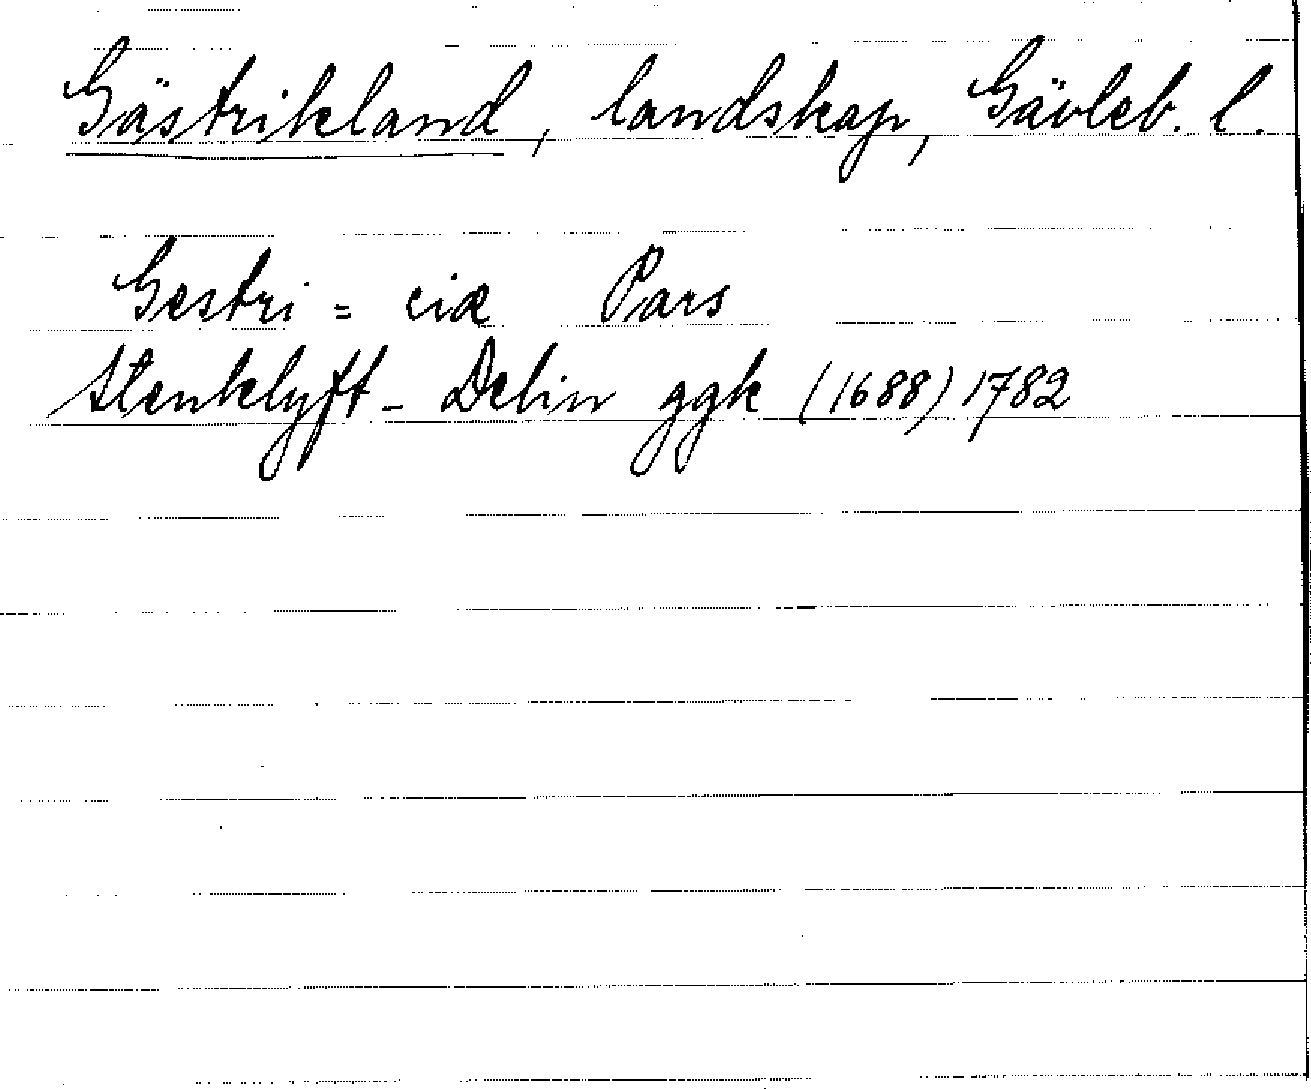 Gästrikland, landskap, Gävleb. l.
Gestri = ciæ Pars
Stenklyft - Delin ggk (1688) 1782